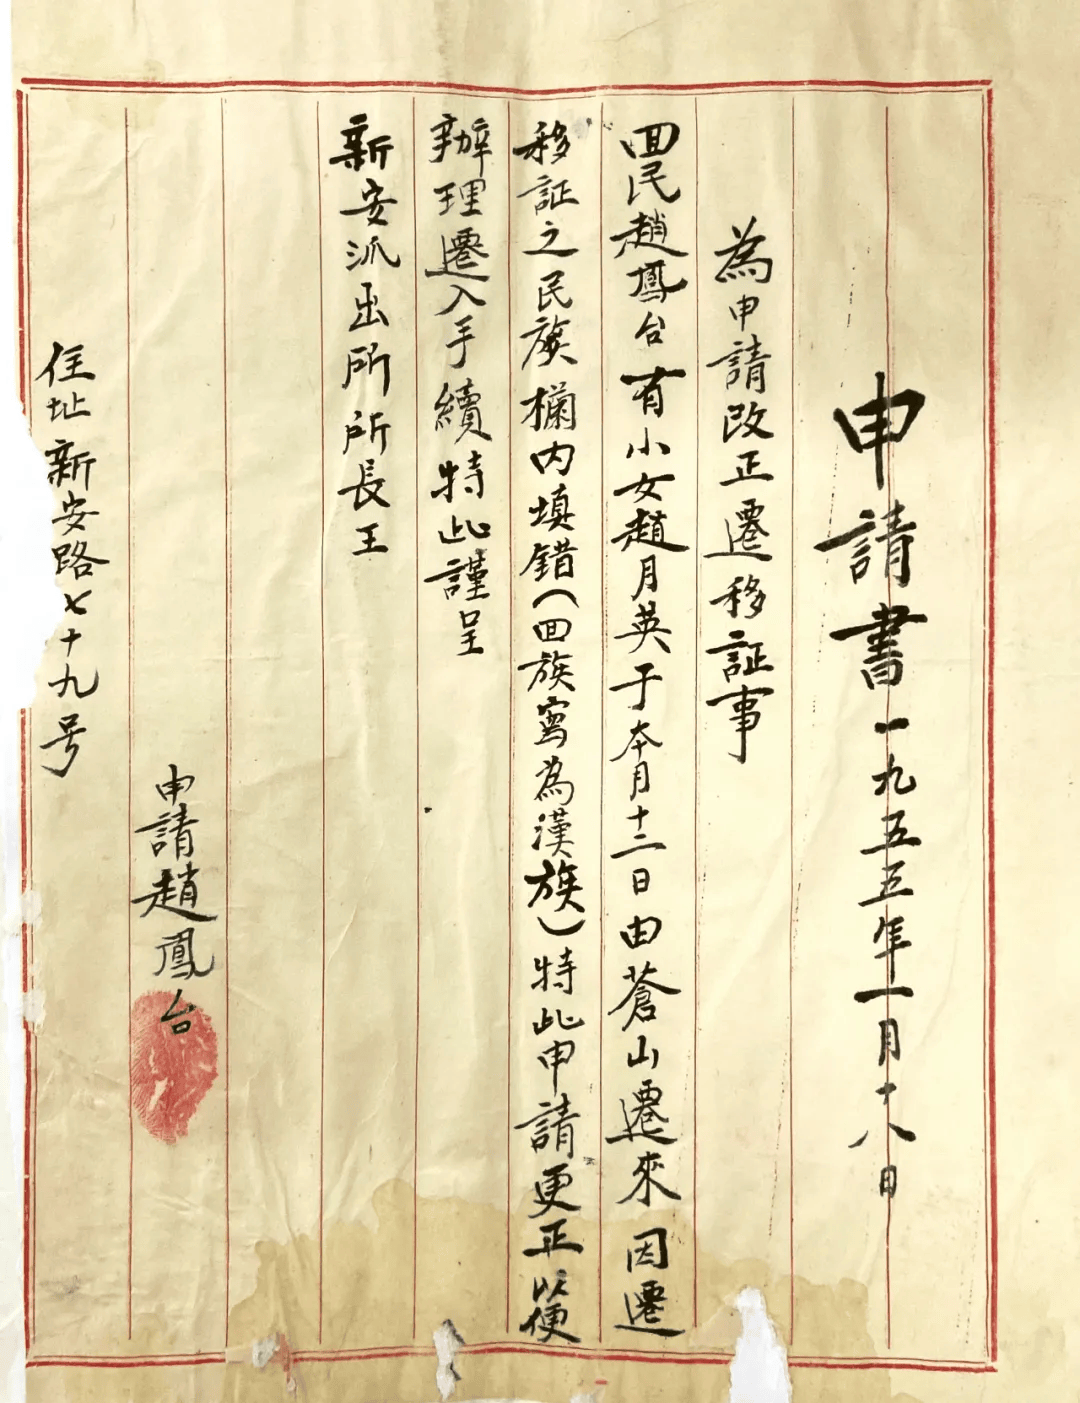 申請書一九五五年一月十八日
為申請改正遷移証事
囬民趙鳳台有小女趙月英于本月十二日由蒼山遷來因遷
移証之民族欄内填錯(囬族寫為漢族)特此申請更正以便
辦理遷入手續特此謹呈
新安派出所所長王
申請趙鳳台
住址新安路七十九号